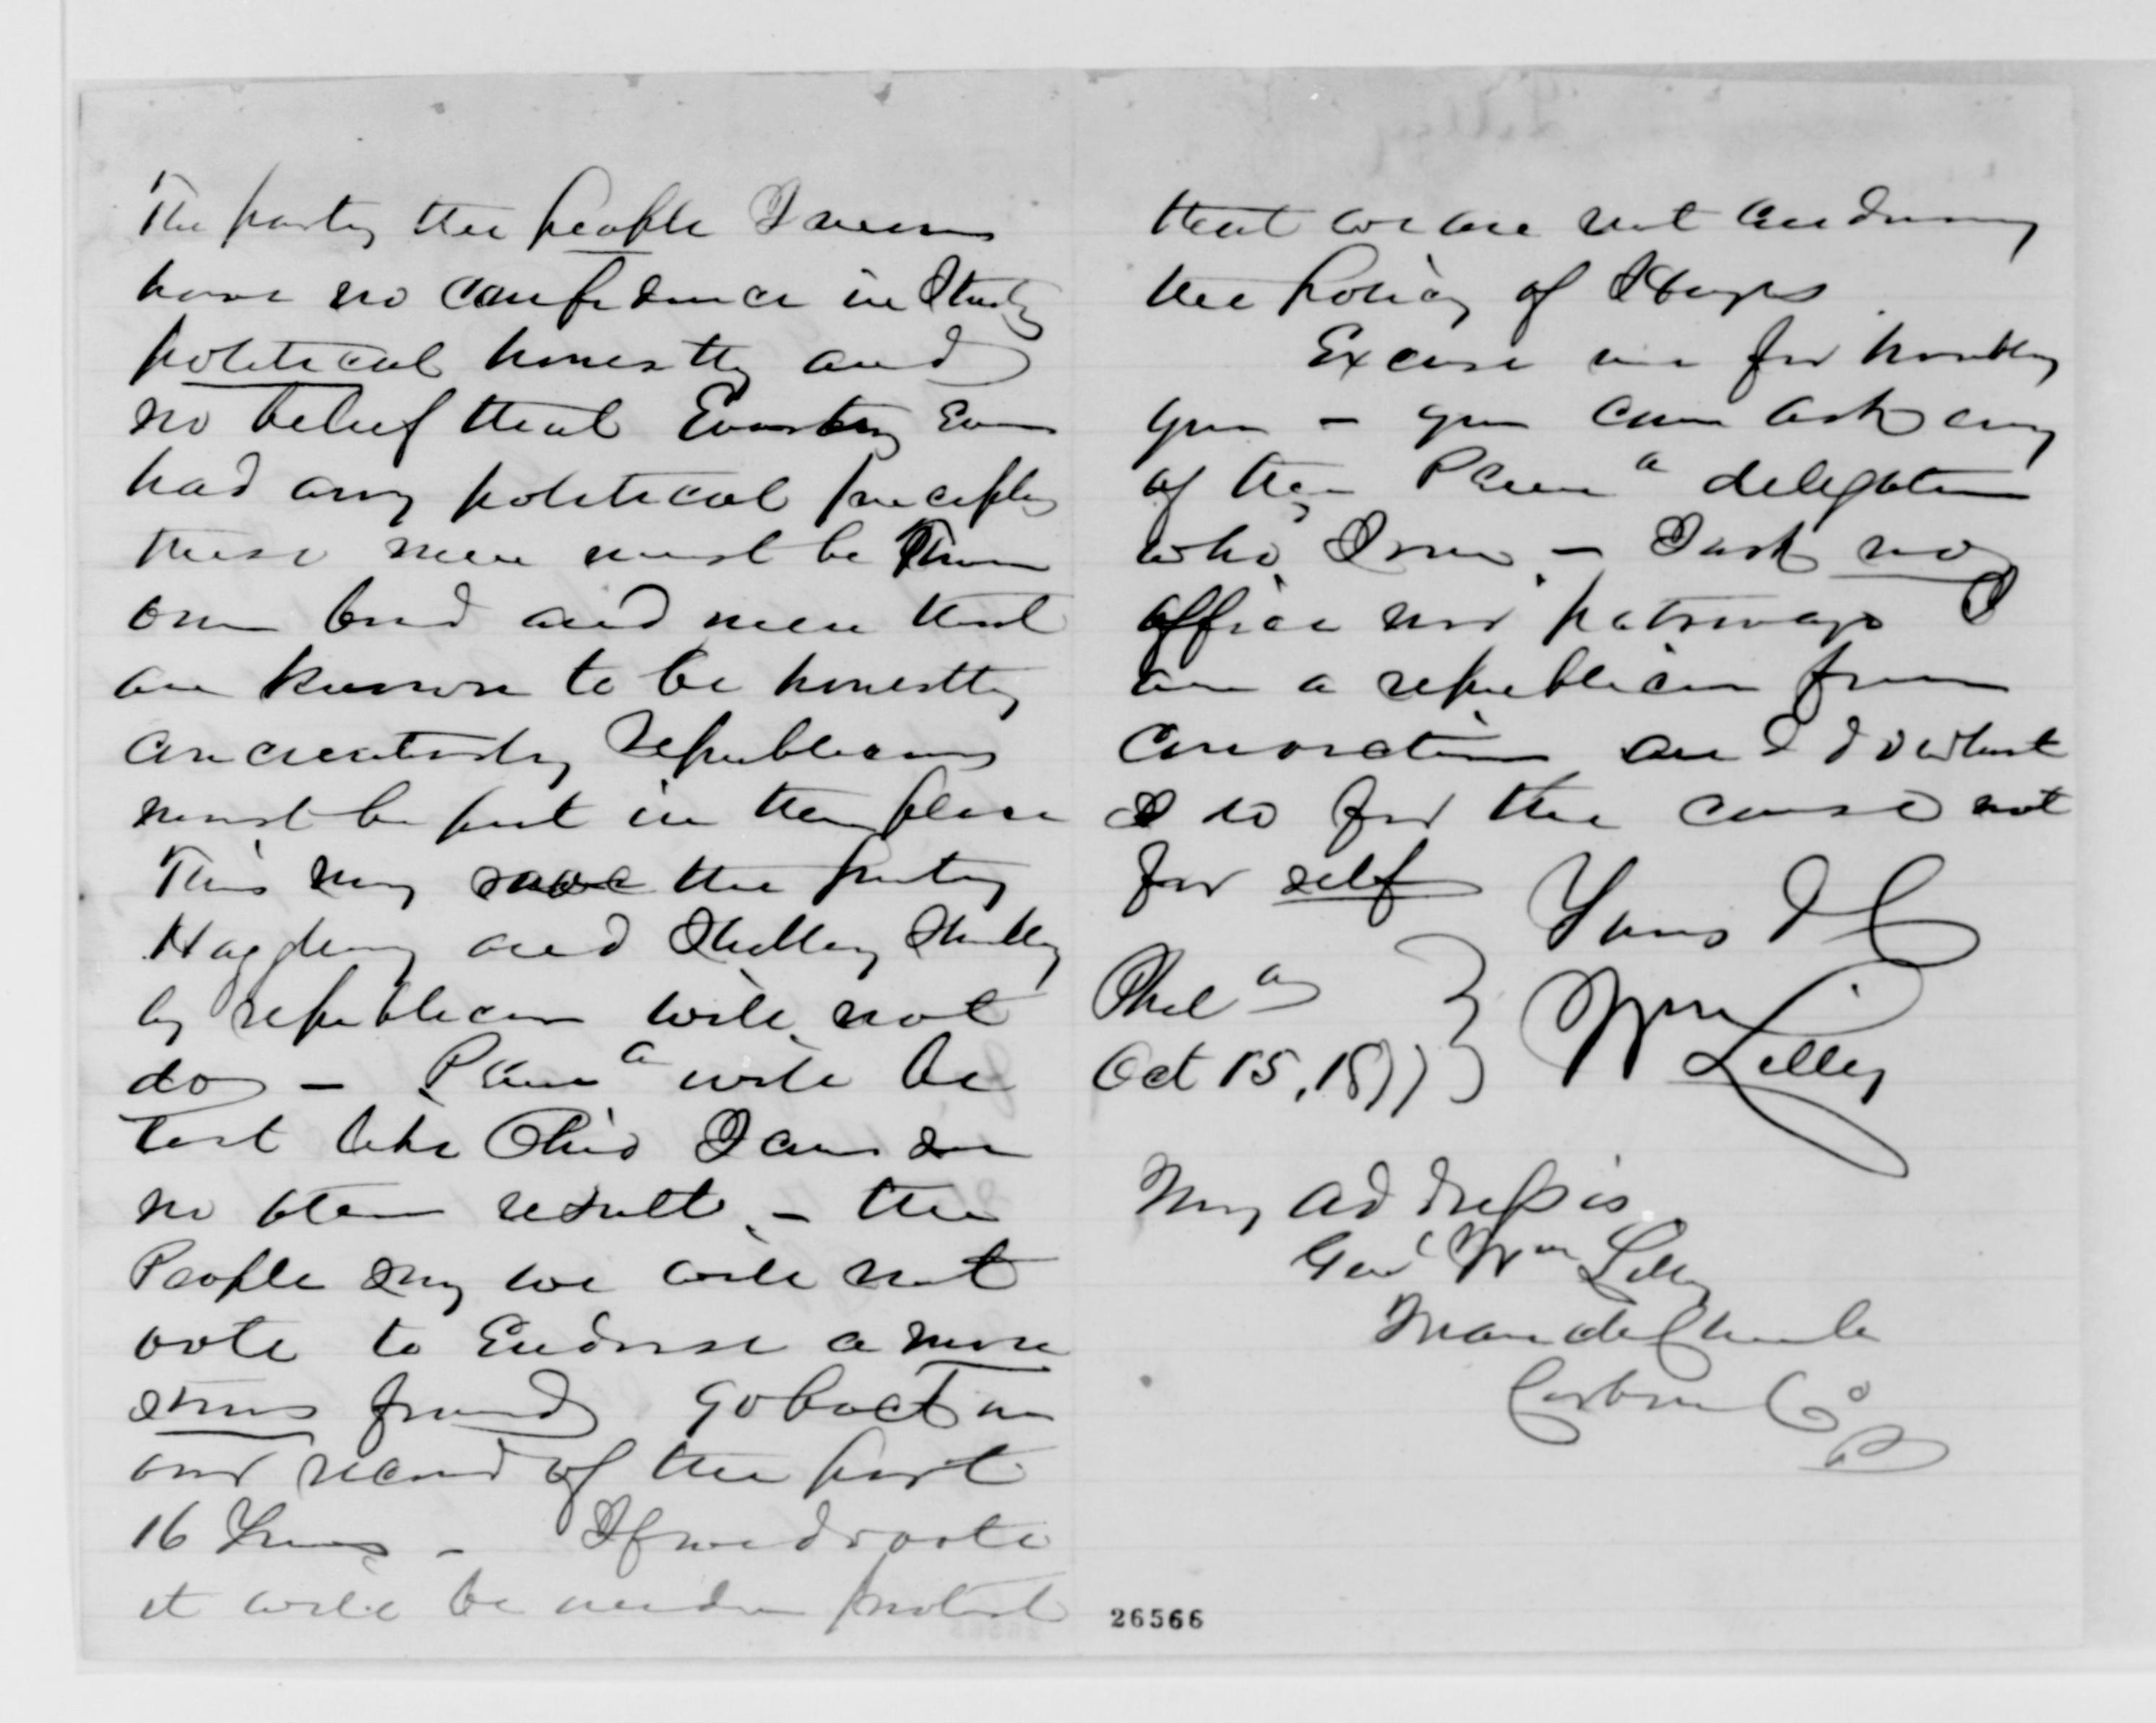 The party the people I mean
have no confidence in
political honesty and
no belief that Evarts Ever
had any political principles
these men must be Thrown
over board and men that
are known to be honestly
Republicans
must be put in their place
This may save the party
and Shelley Shally
by republicans will not
do — Penn a will be
lost like Ohio I can see
no other result, — the
People say we will not
vote to Endorse a monstrous
fraud go back on
our record of the past
16 Years — If we do vote
it will be under protest
that we are not Endorsing
the policy of Hayes
Excuse me for troubling
you — you can ask any
of the Penn a delegation
who I am — I ask no
office nor patronage I
am a republican from
Conviction and I do what
I do for the cause not
for self Yours &C
Phil a Wm Lilly
Oct 15, 1877
My address is
Genl Wm Lilly
Mauch Chunk
Carbon Co
Pa
26566